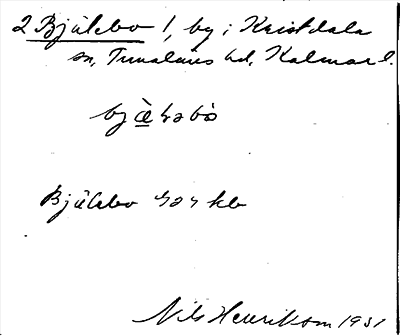 2 Bjälebo 1, by i Kristdala
sn, Tunaläns hd, Kalmar l.
Bjälebo 1909 kb
Nils Henrikson 1931